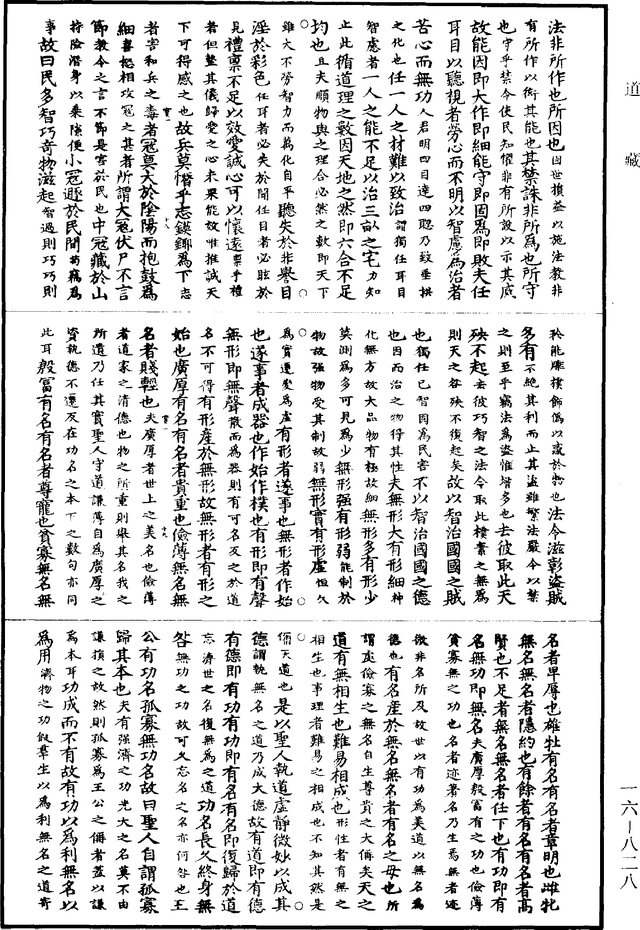 道藏
法非所作也所因也因世損益以施法教非
有所作以衒其能也其禁誅非所為也所守
也守乎禁令使民知懼非有所設以示其威
故能因即大作即細能守即固為即敗夫任
耳目以聽視者勞心而不明以智慮為治者
苦心而無功人君明四目達四聰乃致垂拱
之化也任一人之材難以致治謂獨任耳目
智慮者一人之能不足以治三畝之宅力知
止此循道理之數因天地之然即六合不足
均也且夫順物與之理合必然之數即天下
雖大不勞智力而為化自乎聽失於非譽目
淫於彩色任耳者必失於聞任目者必眩於
見禮亶不足以效愛誠心可以懷遠禀乎禮
者但整其儀歸愛之心未果能故惟推誠天
下可得感之也故兵莫憯乎志鏌鋣為下志
者害和兵之毒者寇莫大於陰陽而枹鼓為
細喜怒相攻寇之甚者所謂大寇伏尸不言
節教令之言不節是害於民也中寇藏於山
持險潛身以乘隙便小寇遯於民間苟竊為
事故曰民多智巧奇物滋起智過則巧巧則
矜能雕樸飾偽以誘於物也法令滋彰盜賊
多有不絕其利而止其盜雖繁法嚴令以禁
之則至乎竊法為盜惟增多也去彼取此天
殃不起去彼巧智之法令取此樸素之無為
則天之咎殃不復起矣故以智治國國之賊
也獨任己智因為民害不以智治國國之德
也因而治之物得其性夫無形大有形細神
化無方故大品物有極故細無形多有形少
莫測為多可見為少無形強有形弱能制於
物故強物受其制故弱無形實有形虛恒久
為實遷變為虛有形者遂事也無形者作始
也遂事者成器也作始作樸也有形即有聲
無形即無聲散而為器則有可名反之於道
名不可得有形產於無形故無形者有形之
始也廣厚有名有名者貴重也儉薄無名無
名者賤輕也夫廣厚者世上之美名也儉薄
者道家之清德也物之所重則舉其名我之
所遺乃任其實聖人守道謙薄自為廣厚之
資執德不遷反在功名之本下之數句亦同
此耳殷富有名有名者尊寵也貧寡無名無
名者卑辱也雄牡有名有名者章明也雌牝
無名無名者隱約也有餘者有名有名者高
賢也不足者無名無名者任下也有功即有
名無功即無名夫廣厚殷富有之功也儉薄
貧寡無之功也名者迹著名乃生焉無者迹
微非名所及故世以有功為美道以無名為
德也有名產於無名無名者有名之母也所
謂處儉寡之無名自生尊貴之大偁矣天之
道有無相生也難易相成也形性者有無之
相生也事理者難易之相成也不知其然是
偁天道也是以聖人執道虛靜微妙以成其
德謂執無名之道乃成大德故有道即有德
有德即有功有功即有名有名即復歸於道
忘濟世之名復無為之道功名長久終身無
咎無功之功故可久忘名之名亦何咎也王
公有功名孤寡無功名故曰聖人自謂孤寡
歸其本也夫有強濟之功光大之名莫不由
謙損之故然則孤寡為王公之偁者蓋以謙
為本耳功成而不有故有功以為利無名以
為用濟物之功假羣生以為利無名之道寄
一六－八二八